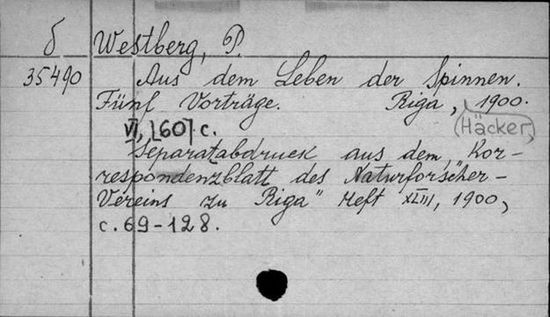 δ Westberg, P.
35490 Aus dem Leben der Spinnen.
Fünf Vorträge. Riga, 1900.
(Häcker)
VI, [60] c.
Separatabdruck aus dem „Kor-
respondenzblatt des Naturforscher-
Vereins zu Riga" Heft XLIII, 1900,
c. 69-128.